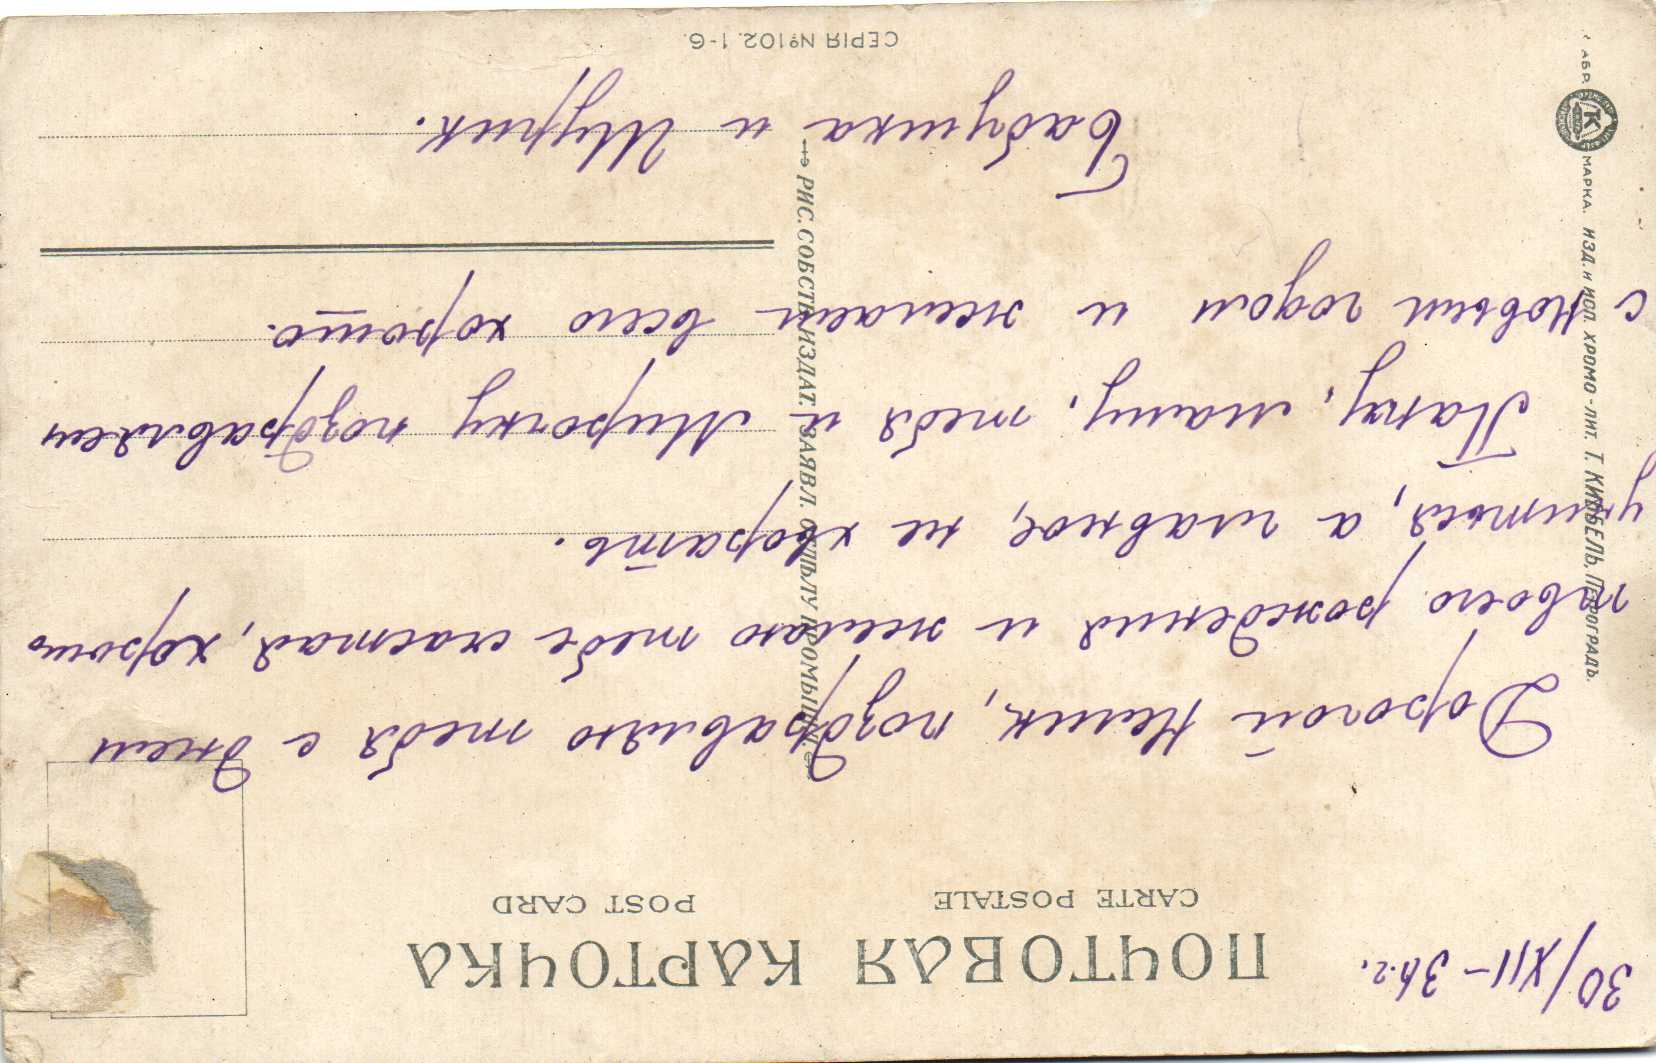 30/XII – 34 г.
ПОЧТОВАЯ КАРТОЧКА
CARTE POSTALE POST CARD
Дорогой поздравляю тебя с днем
твоего рождения и желаю тебе счастья, хорошо
учиться, а главное, не хворать.
Папу, маму, тебя и Мирочку поздравляем
с Новым годом и желаем всего хорошо.
Бабушка и Шурик.
СЕРІЯ №102. 1-6.
РИС. СОБСТВ. ИЗДАТ. ЗАЯВЛ. ОТДѢЛУ ПРОМЫШЛ.
ФАБР. К МАРКА. ИЗД. и ИСП. ХРОМО-ЛИТ. Т. КИББЕЛЬ, ПЕТРОГРАДЪ.